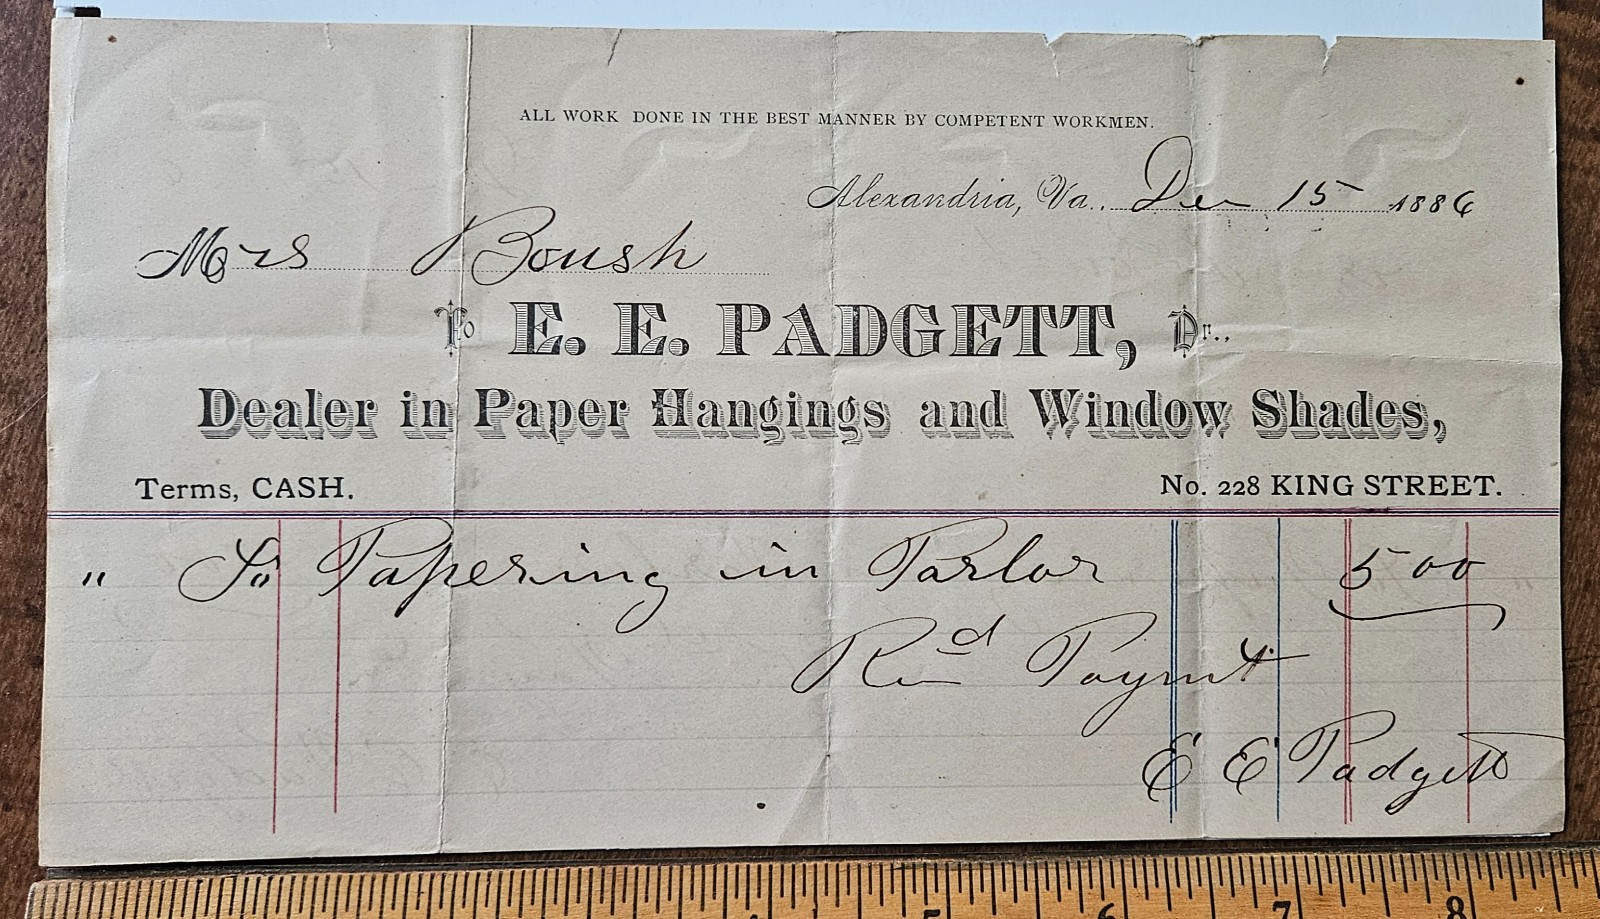 ALL WORK DONE IN THE BEST MANNER BY COMPETENT WORKMEN.
Alexandria, Va. Dec 15 1886
Mrs Boush
To E. E. PADGETT, Dr.,
Dealer in Paper Hangings and Window Shades,
Terms, CASH. No. 228 KING STREET.
" To Papering in Parlor 5 00
Recd Paymt
E E Padgett
5 6 7 8